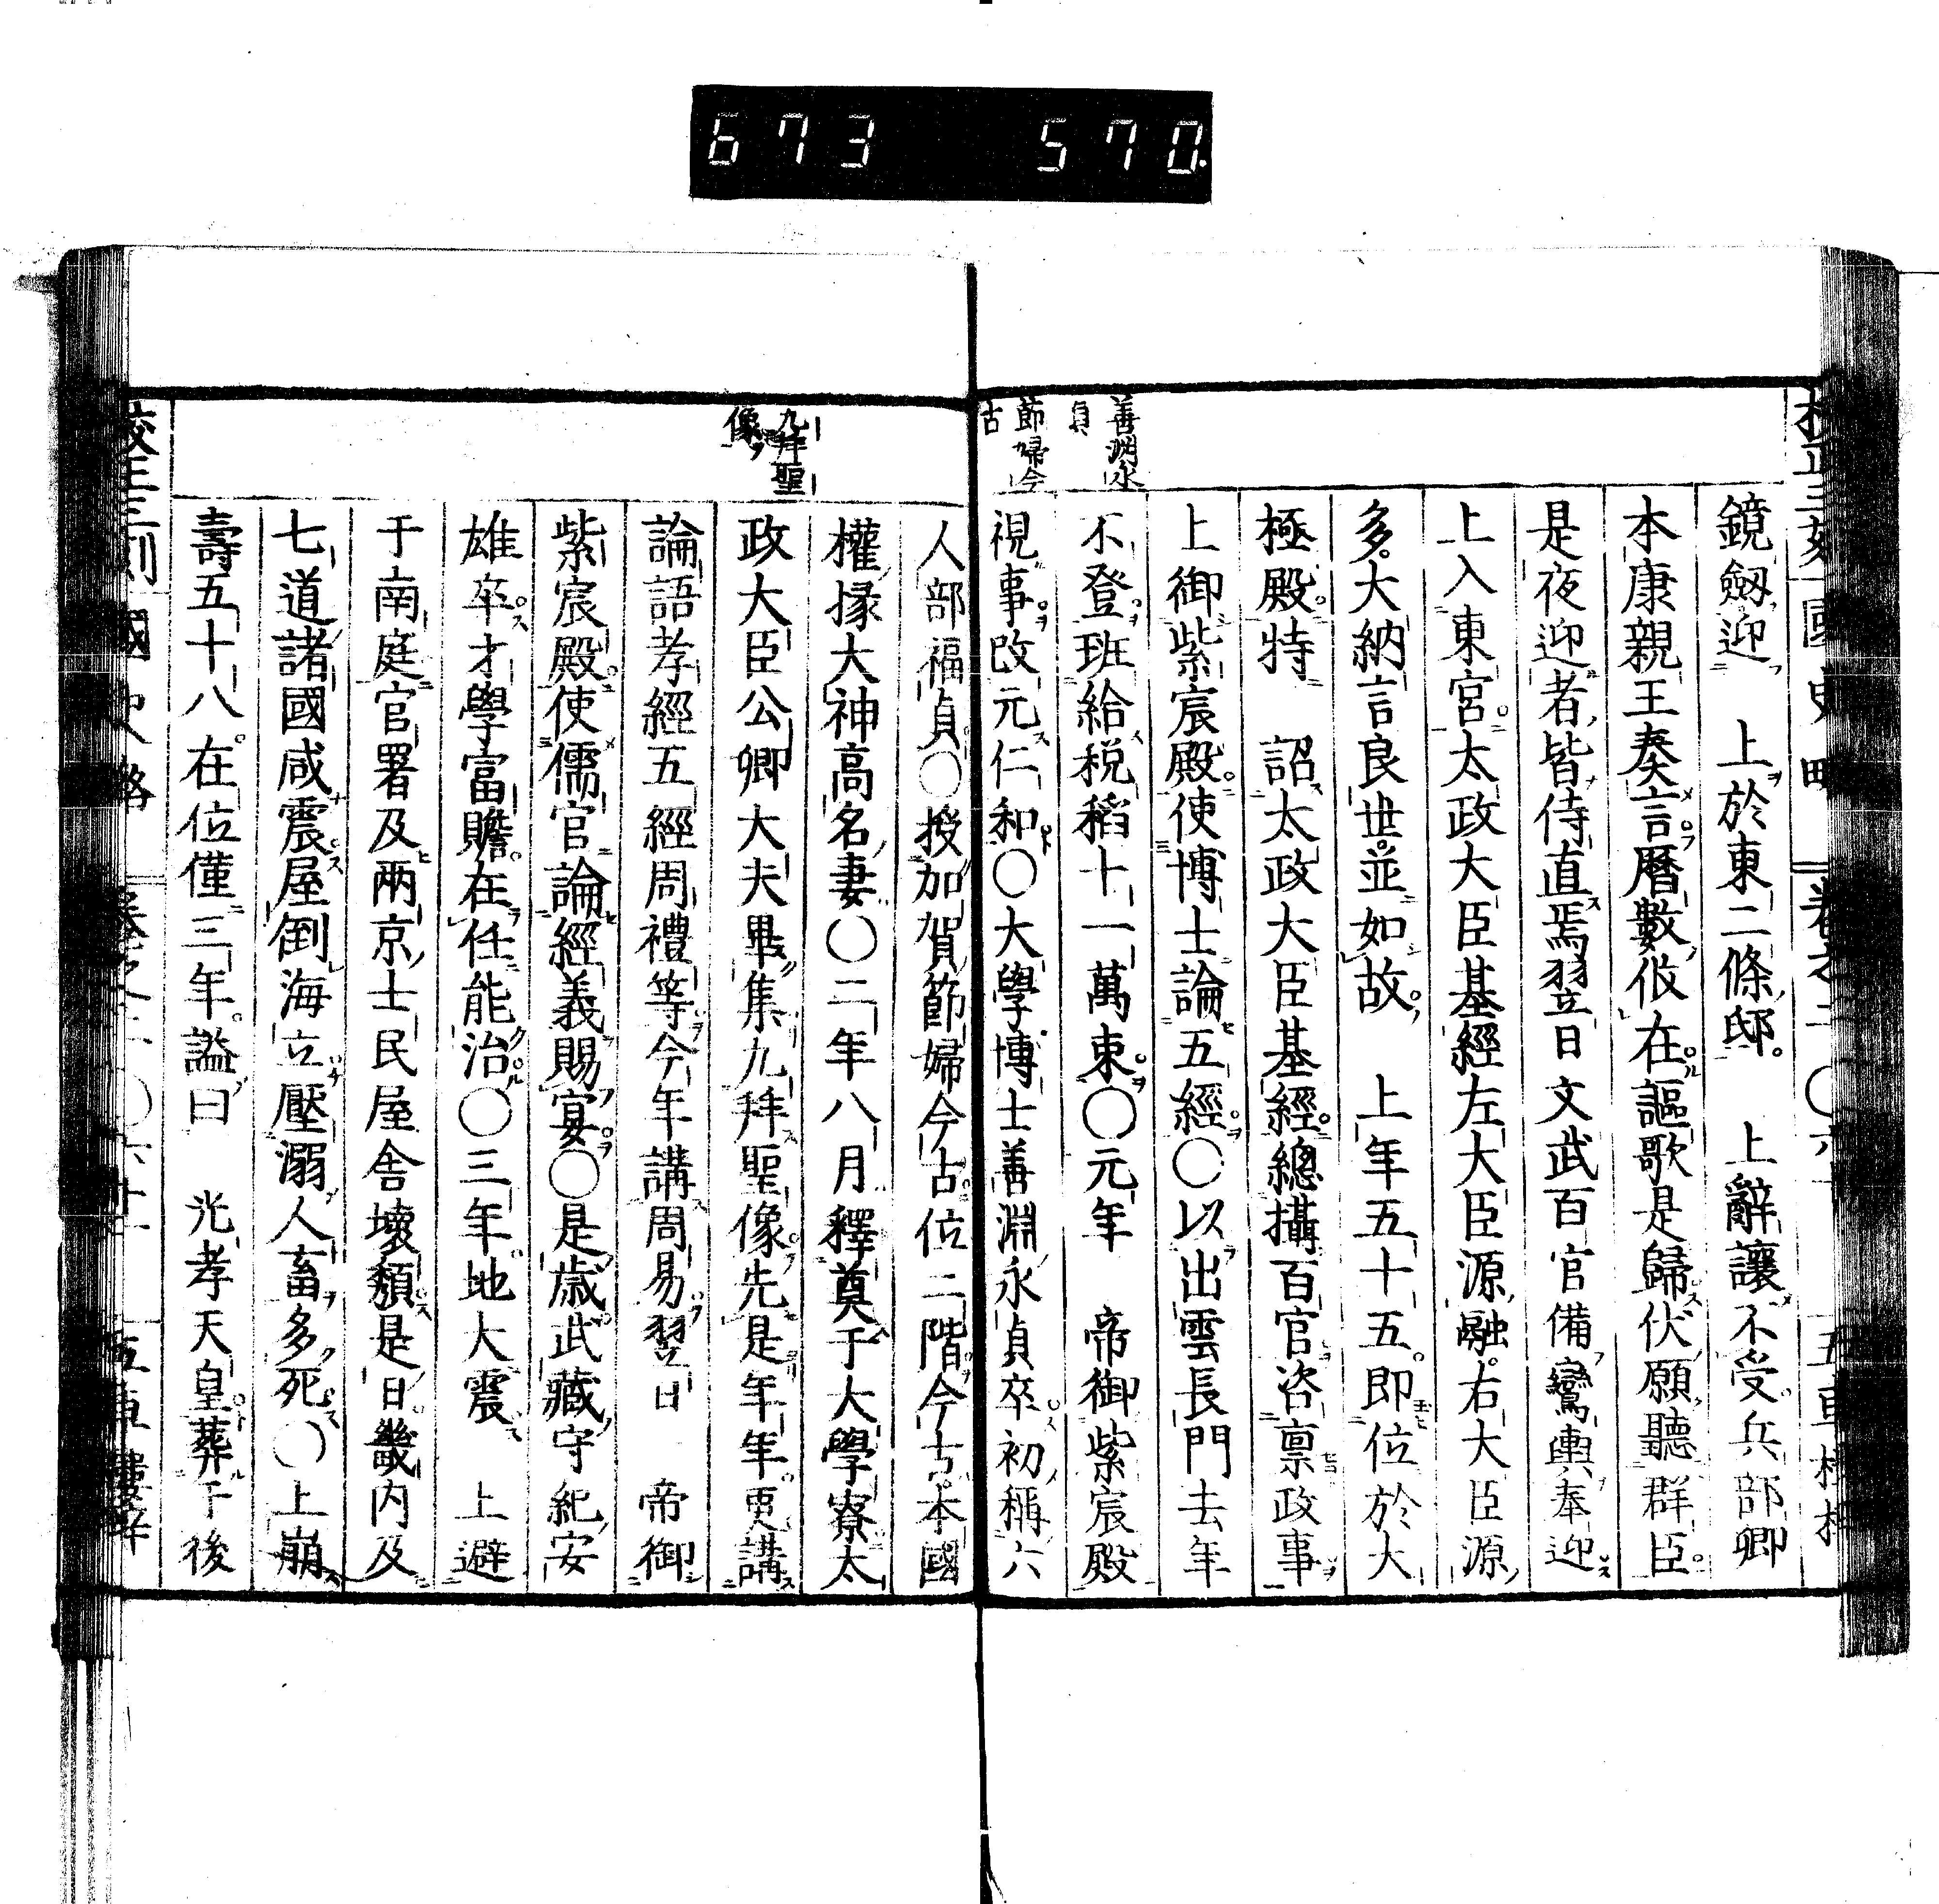 673 570.
善淵永
貞
節婦今
古
鏡劔迎 上於東二條邸 上辭讓不受兵部卿
本康親王奏言曆數攸在謳歌是歸伏願聽群臣
是夜迎者皆侍直焉翌日文武百官備鸞輿奉迎
上入東宮太政大臣基經左大臣源融右大臣源
多大納言良世並如故 上年五十五即位於大
極殿特 詔太政大臣基經總攝百官咨禀政事
上御紫宸殿使博士論五經〇以出雲長門去年
不登班給税稻十一萬束〇元年 帝御紫宸殿
視事改元仁和〇大學博士善淵永貞卒初稱六
九拜聖
像
人部福貞〇授加賀節婦今古位二階今古本國
權掾大神高名妻〇二年八月釋奠于大學寮太
政大臣公卿大夫畢集九拜聖像先是年年更講
論語孝經五經周禮等今年講周易翌日 帝御
紫宸殿使儒官論經義賜宴〇是歳武藏守紀安
雄卒才學富贍在任能治〇三年地大震 上避
于南庭官署及兩京士民屋舍壞頽是日畿内及
七道諸國咸震屋倒海立壓溺人畜多死〇上崩
壽五十八在位僅三年謚曰 光孝天皇葬于後